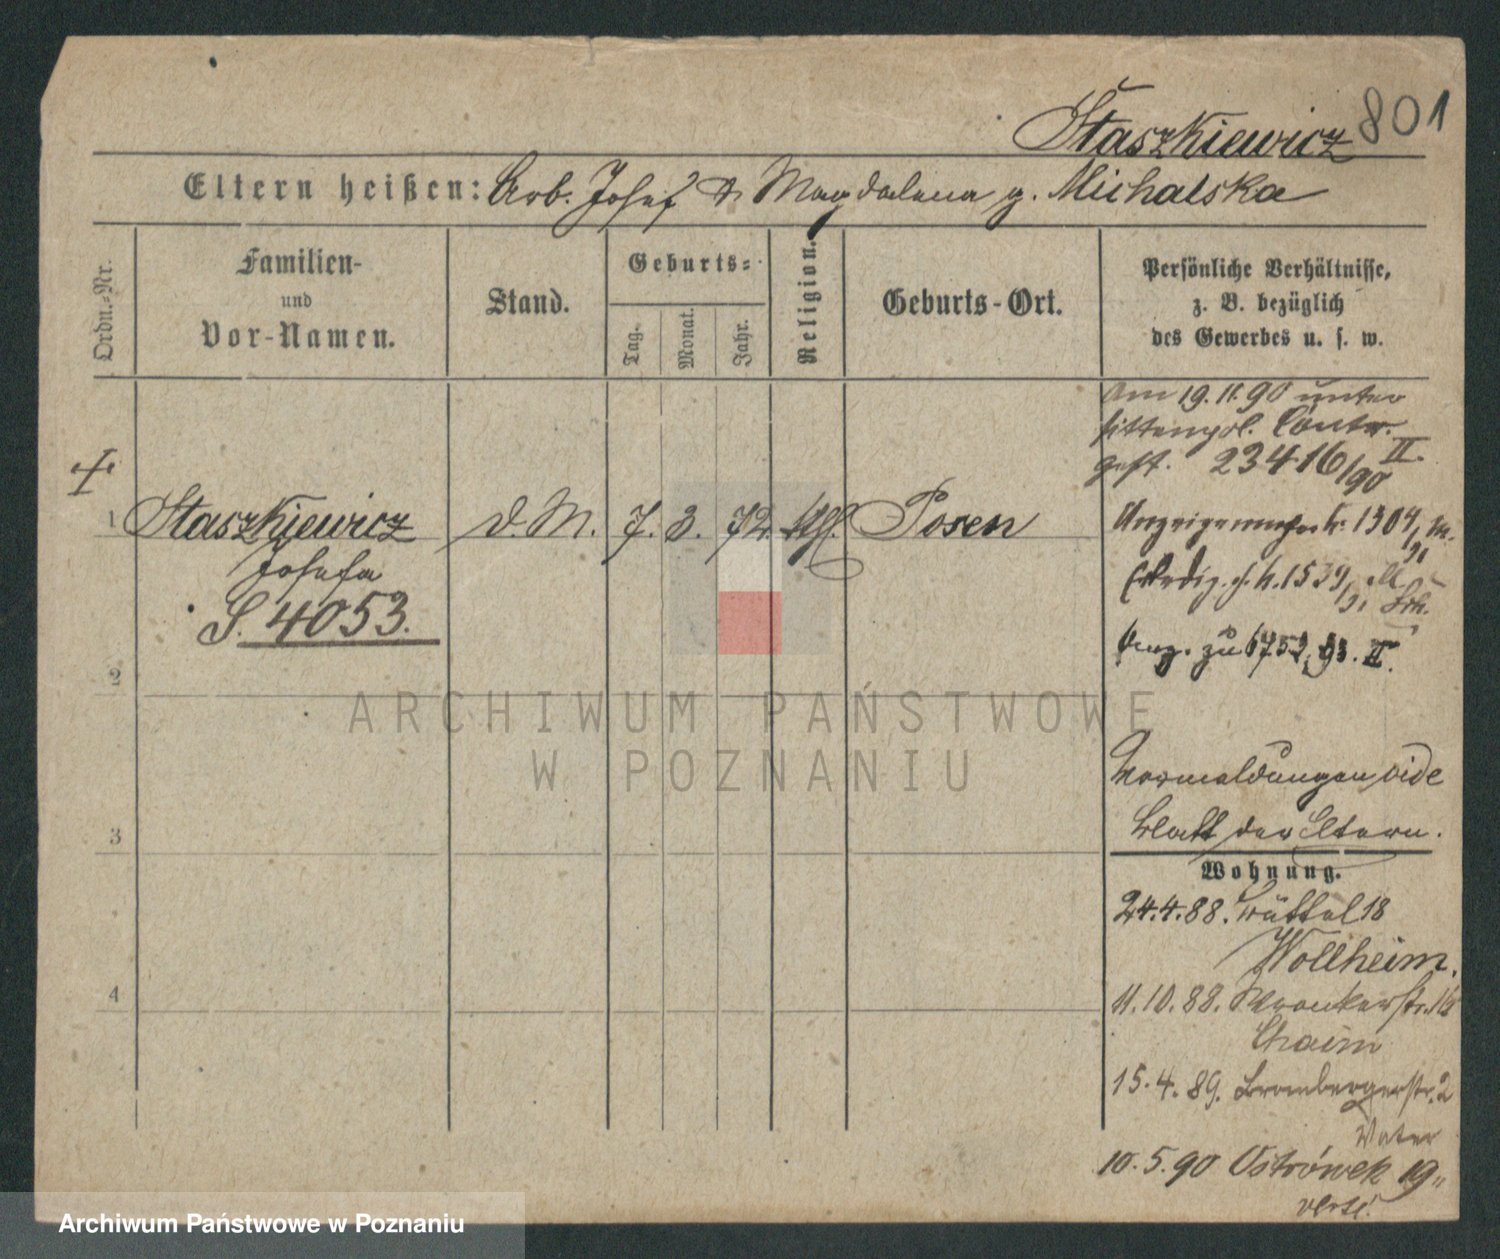 801
Staszkiewicz
Eltern heißen: Arb. Josef & Magdalena g. Michalska
Ordn.-Nr.
Familien-
und
Vor-Namen.
Stand.
Geburts-
Tag.
Monat.
Jahr.
Religion.
Geburts-Ort.
Persönliche Verhältnisse,
z. B. bezüglich
des Gewerbes u. s. w.
1 Staszkiewicz d. M. 7. 3. 72. Posen
Josefa
S. 4053.
2
3
4
Am 19.11.90 unter
sittenpol. Contr.
gest. 23416/90 II.
1304/91
Erledig. 1539/91
Anz. zu 93. II.
Vormeldungen vide
Blatt der Eltern.
Wohnung.
24.4.88. Büttel 18
Wollheim.
11.10.88. Wronkerstr.
Chaim
15.4.89. Brombergerstr. 2
Vater
10.5.90 Ostrówek 19
ARCHIWUM PAŃSTWOWE
W POZNANIU
Archiwum Państwowe w Poznaniu